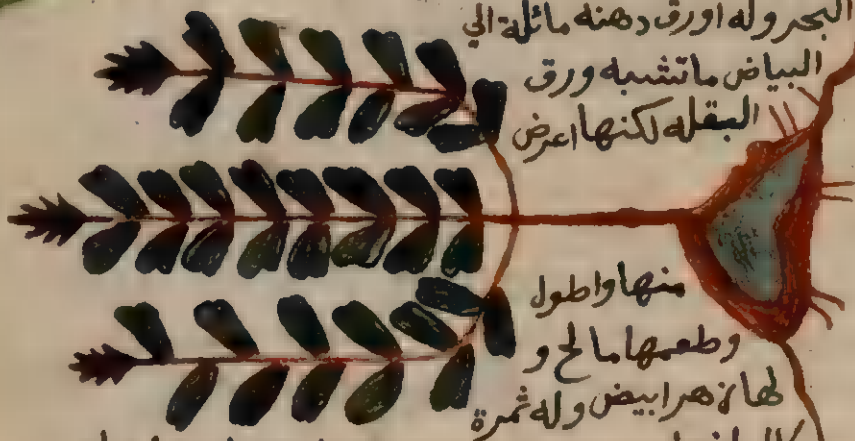 البحر وله اورق دهنه مائلة الي
البياض ما تشبه ورق
البقله لكنها اعرض
منها واطول
وطعمها مالح و
لها زهر ابيض وله ثمرة